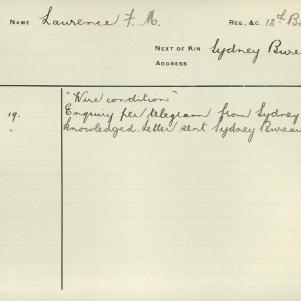 NAME Lawrence F. M. REG. &C. 18th B
NEXT OF KIN Sydney Bureau
ADDRESS
"Wire condition"
19. Enquiry per telegram from Sydney
knowledged. Letter sent Sydney Bureau